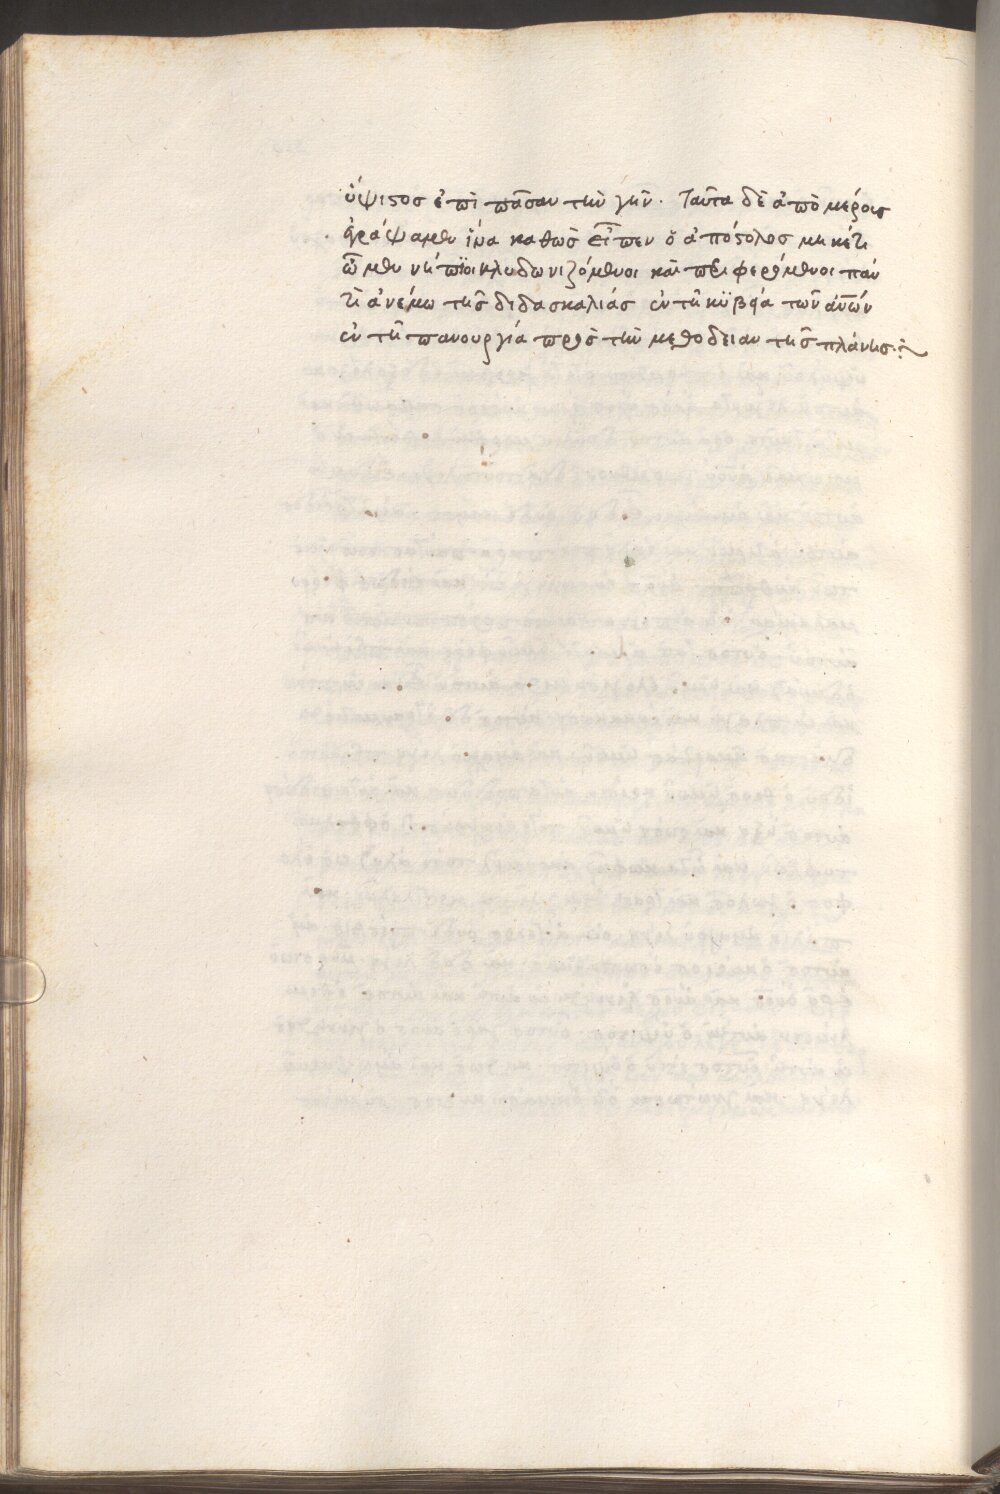 ὕψιστος ἐπὶ πᾶσαν τὴν γῆν. Ταῦτα δὲ ἀπὸ μέρους
ἐγράψαμεν ἵνα καθὼς εἶπεν ὁ ἀπόστολος μηκέτι
ὦμεν νήπϊοι κλυδωνιζόμενοι καὶ περιφερόμενοι παν
τὶ ἀνέμω τῆς διδασκαλιάς ἐν τῆ κϋβεία τῶν ἀνῶν
ἐν τῆ πανουργία πρὸς τὴν μεθοδειαν τῆς πλάνης:~